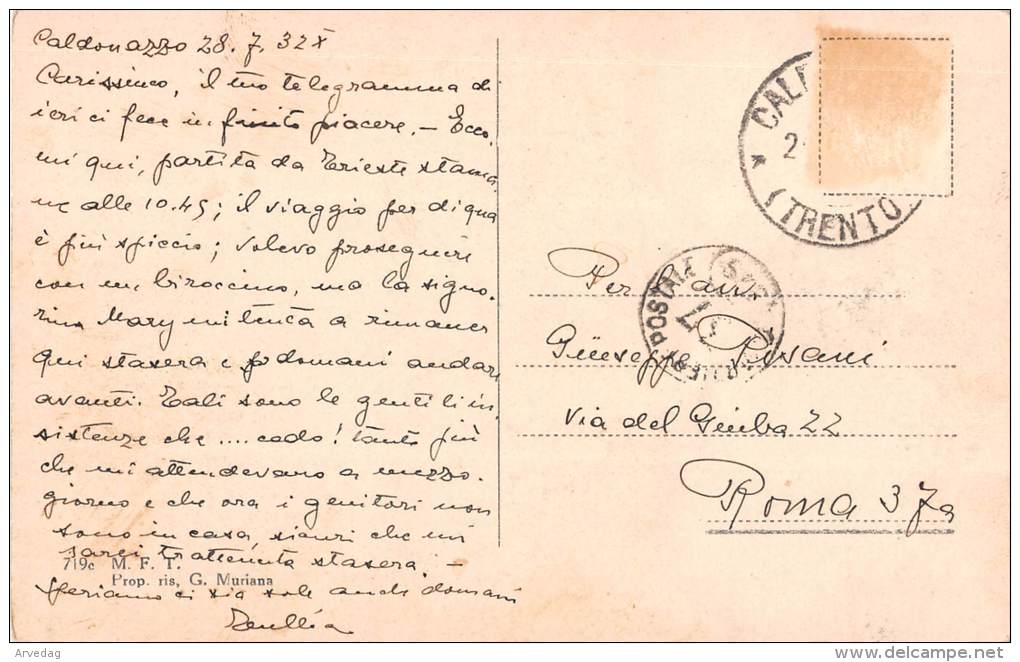 Caldonazzo 28.7.32 X
Carissimo, il tuo telegramma di
ieri ci fece infinito piacere. – Ecco
mi qui, partita da Trieste stama
ne alle 10.45; il viaggio per di qua
è più spiccio; volevo proseguire
con un biroccino, ma la signo-
rina Mary mi tenta a rimaner
qui stasera e domani andare
avanti. Tali sono le gentili in
sistenze che .... cedo! tanto più
che mi attendevano a mezzo-
giorno e che ora i genitori non
sono in casa, sicuri che mi
sarei trattenuta stasera. –
Speriamo ci sia sole anche domani
719c M. F. T.
Prop. ris, G. Muriana
CAL
2
(TRENTO
POSTALE
Per l'avv.
Giuseppe Pisani
Via del Giuba 22
Roma 37a
Arvedag
www.delcampe.net